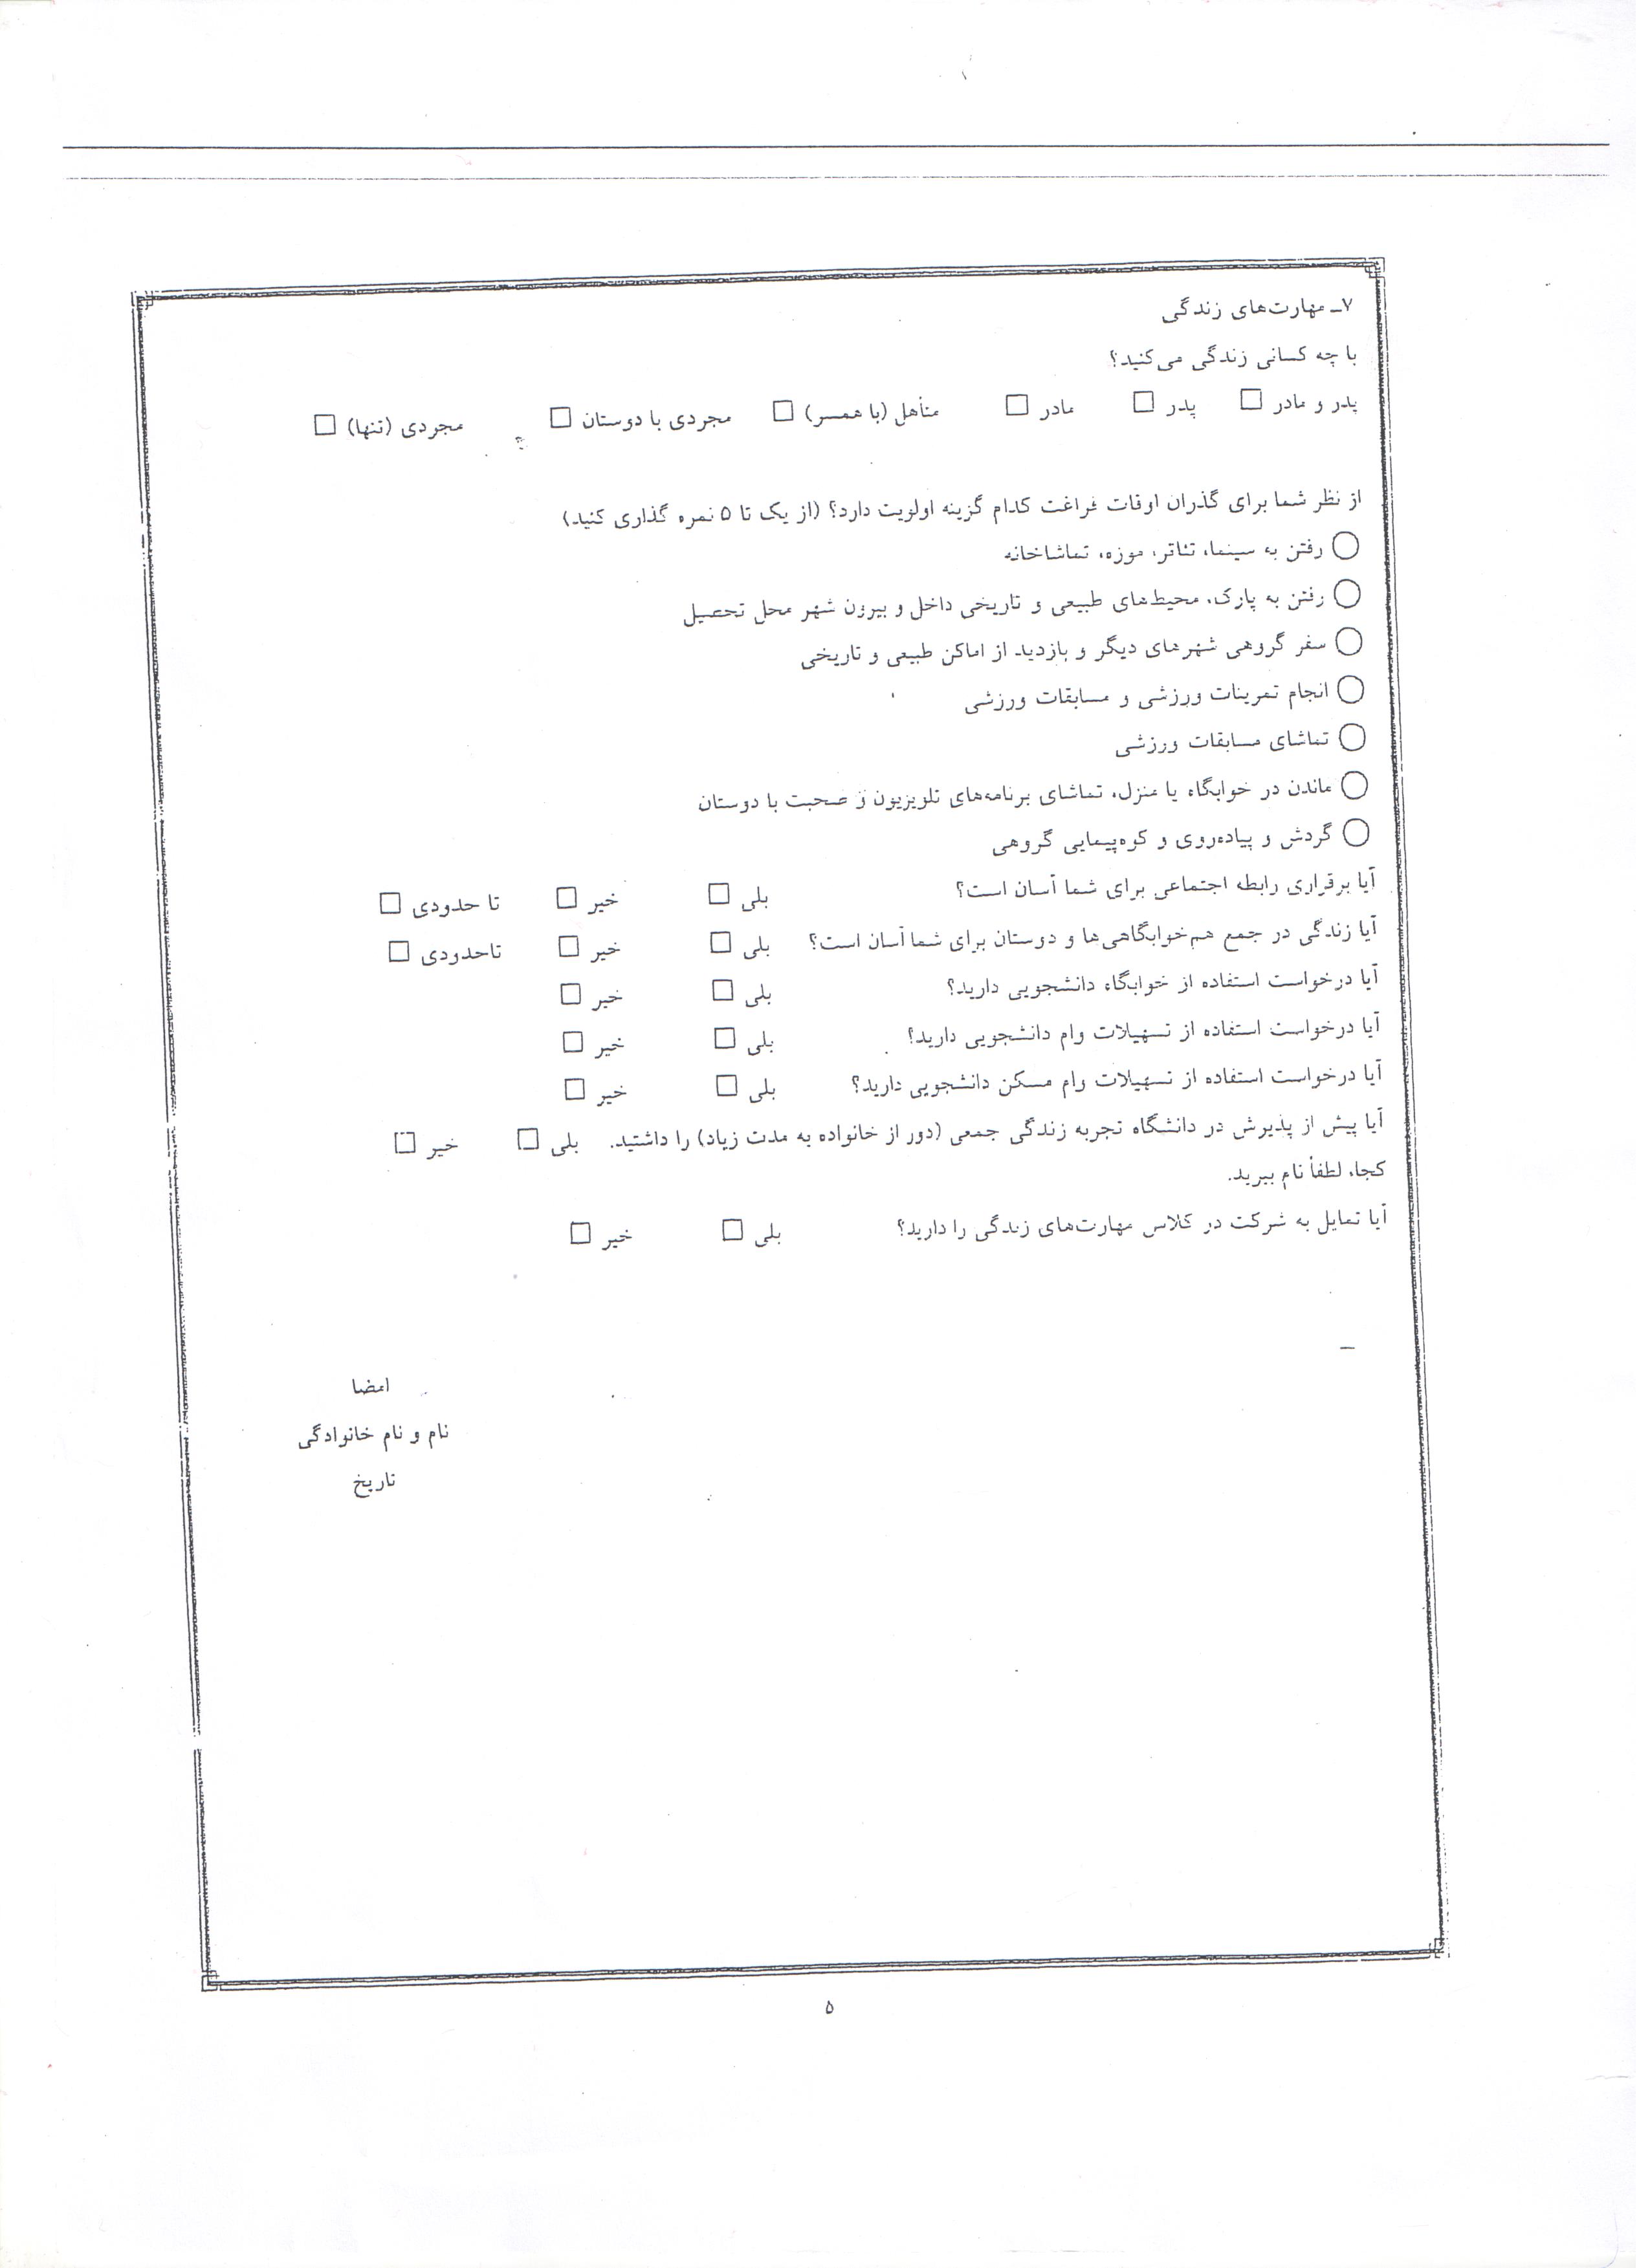 ۷ـ مهارت‌های زندگی
با چه کسانی زندگی می‌کنید؟
پدر و مادر □ پدر □ مادر □ متأهل (با همسر) □ مجردی با دوستان □ مجردی (تنها) □
از نظر شما برای گذران اوقات فراغت کدام گزینه اولویت دارد؟ (از یک تا ۵ نمره گذاری کنید)
○ رفتن به سینما، تئاتر، موزه، تماشاخانه
○ رفتن به پارک، محیط‌های طبیعی و تاریخی داخل و بیرون شهر محل تحصیل
○ سفر گروهی شهرهای دیگر و بازدید از اماکن طبیعی و تاریخی
○ انجام تمرینات ورزشی و مسابقات ورزشی
○ تماشای مسابقات ورزشی
○ ماندن در خوابگاه یا منزل، تماشای برنامه‌های تلویزیون و صحبت با دوستان
○ گردش و پیاده‌روی و کوه‌پیمایی گروهی
آیا برقراری رابطه اجتماعی برای شما آسان است؟ بلی □ خیر □ تا حدودی □
آیا زندگی در جمع هم‌خوابگاهی‌ها و دوستان برای شما آسان است؟ بلی □ خیر □ تاحدودی □
آیا درخواست استفاده از خوابگاه دانشجویی دارید؟ بلی □ خیر □
آیا درخواست استفاده از تسهیلات وام دانشجویی دارید؟ بلی □ خیر □
آیا درخواست استفاده از تسهیلات وام مسکن دانشجویی دارید؟ بلی □ خیر □
آیا پیش از پذیرش در دانشگاه تجربه زندگی جمعی (دور از خانواده به مدت زیاد) را داشتید. بلی □ خیر □
کجا، لطفاً نام ببرید.
آیا تمایل به شرکت در کلاس مهارت‌های زندگی را دارید؟ بلی □ خیر □
امضا
نام و نام خانوادگی
تاریخ
۵